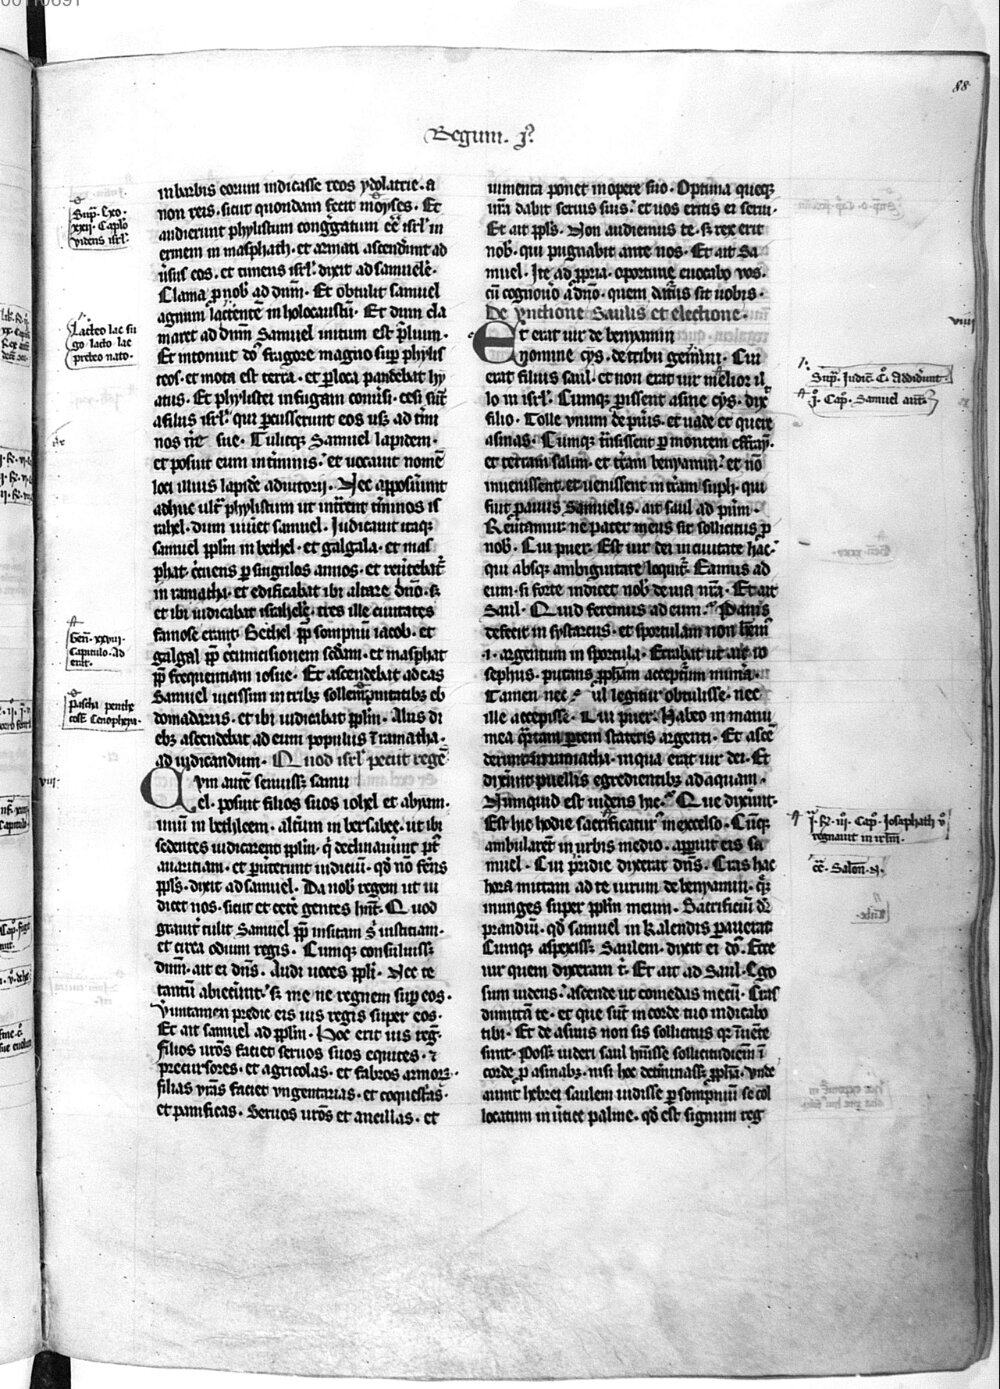 88
Regum. j?
in barbis eorum indicasse reos ydolatrie. a
non reis. sicut quondam fecit moyses. Et
audierunt phylistiim congregatum ēē isrl' in
ermem in masphath. et armati ascenderunt ad
ūsus eos. et timens isrl'. dixit ad samuelē.
Clama p nob' ad dnm̄. Et obtulit samuel
agnum lactentē in holocaustū. Et dum cla
maret ad dnm̄ Samuel initum est p̄lium.
Et intonuit dn̄s fragore magno sup phylis
teos. et mota est terra. et p loca pandebat hy
atus. Et phylistei in fugam con̄si. cesi sūt
a filiis isrl'. qui percusserunt eos usq; ad t̄mi
nos t̄re sue. Tulitq; Samuel lapidem.
et posuit eum in t̄minis. et uocauit nomē
loci illius lapidē adiutorii. Nec apposuerunt
adhuc ult̄ phylistiim ut int̄rent t̄minos is
rahel. dum uiuet samuel. Iudicauit itaq;
samuel pplm̄ in bethel. et galgala. et mas
phat. circuiens p singulos annos. et reūtebat̄
in ramatha. et edificabat ibi altare dn̄o. s;
et ibi iudicabat israhelē. tres ille ciuitates
famose erant. Bethel pp̄ sompniū iacob. et
galgal pp̄ circumcisionem scd̄am. et masphat
pp̄ frequentiam iosue. Et ascendebat ad eas
Samuel uicissim in trib; sollempnitatib; eb
domadarus. et ibi iudicabat pplm̄. Aliis di
eb; ascendebat ad eum populus ī ramatha.
ad iudicandum. Quod isrl' petiit regē
Cum autē senuiss; samu
el. posuit filios suos iohel et abyam.
unū in bethleem. alterum in bersabee. ut ibi
sedentes iudicarent pplm̄. q̄ declinauerunt p̄t
auaritiam. et puerterunt iudiciū. qd̄ nō ferēs
ppl's. dixit ad samuel. Da nob' regem ut iu
dicet nos. sicut et cetē gentes hn̄t. Quod
grauit̄ tulit Samuel pp̄ insitam s' iusticiam.
et circa odium regis. Cumq; consuluiss;
dnm̄. ait ei dn̄s. Audi uoces ppl̄i. Nec te
tantū abiecerunt. s; me ne regnem sup eos.
Veruntamen predic eis ius regis super eos.
Et ait samuel ad pplm̄. Hoc erit ius reg.
filios ur̄os faciet seruos suos equites. ⁊
precursores. et agricolas. et fabros armor.
filias ur̄as faciet ungentarias. et coquesias.
et panificas. Seruos ur̄os et ancillas. et
iumenta ponet in opere suo. Optima queq;
ur̄a dabit seruis suis. et uos eritis ei serui.
Et ait ppl's. Non audiemus te. s; rex erit
nob'. qui pugnabit ante nos. Et ait Sa
muel. Ite ad ppria. oportune euocabo uos.
cū cognouero a dn̄o. quem daturus sit uobis.
De ynctione Saulis et electione.
Et erat uir de benyamin
nomine cys. de tribu gemini. Cui
erat filius saul. et non erat uir melior il
lo in isrl'. Cumq; pissent asine cys. dix̄
filio. Tolle unum de pueris. et uade et quere
asinas. Cumq; t̄nsissent p montem effray.
et terram salim. et t̄ram benyamin. et nō
inuenissent. et uenissent in t̄ram suph. qui
fuit pauus Samuelis. ait saul ad puerum.
Reuertamur. ne pater meus sit sollicitus p
nob'. Cui puer. Est uir dei in ciuitate hac.
qui absq; ambiguitate loquit̄. Eamus ad
eum. si forte indicet nob' de uia nr̄a. Et ait
Saul. Quid feremus ad eum. Panis
defecit in systarciis. et sportulam non hēm'
.i. argentum in sportula. Errabat ut ait io
sephus. putans pphām acceptur̄ munera.
Tamen nec ul' legitur obtulisse. nec
ille accepisse. Cui puer. Habeo in manu
mea quartam partem stateris argenti. Et ascē
derunt in ramatha. in qua erat uir dei. Et
dixerunt puellis egredientib; ad aquam.
Numquid est uidens hic. Que dixerunt.
Est hic hodie sacrificatur in excelso. Cūq;
ambularēt in urbis medio. apparuit eis sa
muel. Cui pridie dixerat dn̄s. Cras hac
hora mittam ad te uirum de benyamin. q̄
inunges super pplm̄ meum. Sacrificiū dr̄
prandiū. qd̄ samuel in Kalendis parauerat
Cumq; aspexiss; Saulem. dixit ei dn̄s. Ecce
uir quem dixeram t'. Et ait ad Saul. Ego
sum uidens. ascende ut comedas mecū. Cras
dimittā te. et que sūt in corde tuo indicabo
tibi. Et de asinis non sis sollicitus qr̄ inuēte
sunt. Poss; uideri saul hūisse sollicitudinem ī
corde p asinab;. nisi hoc determinass; ppha. Vnde
aiunt hebrei saulem uidisse p sompniū se col
locatum in ūtice palme. qd̄ est signum reg
Sup. Exo.
xxxii. Caplo
videns isrl'.
Lacteo lac su
go. lacto. lac
prebeo nato.
Gen. xxviii.
Capitulo. Ad
erat.
Pascha penthe
coste Cenophexi.
viii.
viiii
Sup. Iudic. C. Addiderunt.
j. Cap. Samuel autē
j. R. iii. Cap. Iosaphath v.
regnauit in irlm.